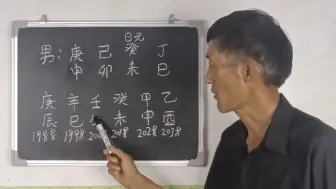 日元
男：庚 己 癸 丁
申 卯 未 巳
庚 辛 壬 癸 甲 乙
辰 巳 未 申 酉
1988 1998 2018 2028 2038